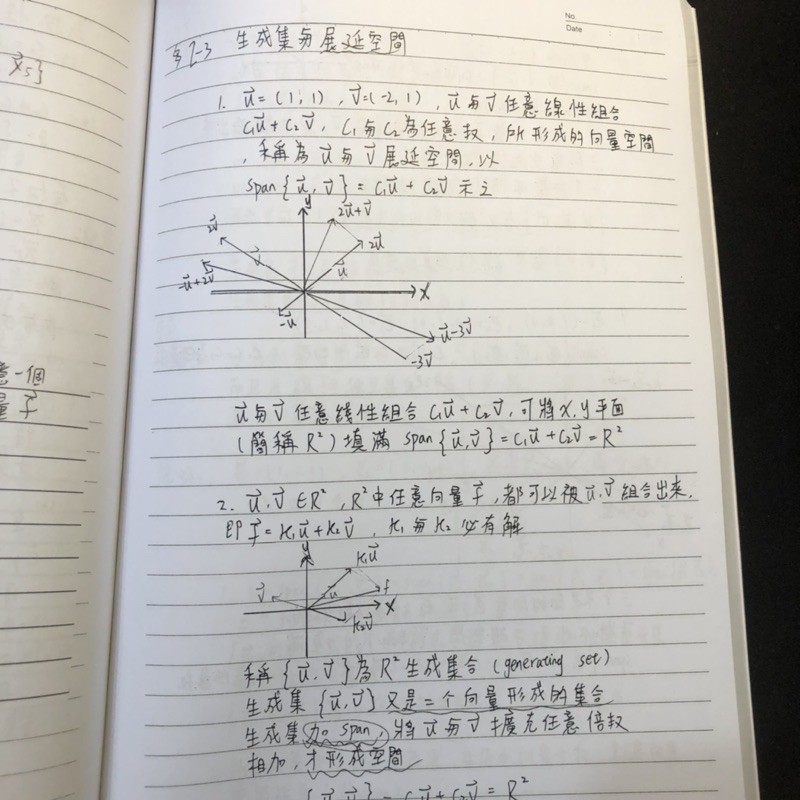 No.
Date
§2-3 生成集与展延空間
x⃗₅}
1. u⃗=(1,1), v⃗=(-2,1), u⃗与v⃗任意線性組合
c₁u⃗+c₂v⃗, c₁与c₂為任意数, 所形成的向量空間
, 称為u⃗与v⃗展延空間, 以
span{u⃗,v⃗}=c₁u⃗+c₂v⃗ 示之
y
2u⃗+v⃗
2v⃗
2u⃗
v⃗
u⃗
-u⃗+2v⃗
x
-u⃗
u⃗-3v⃗
-3v⃗
意一個
量f⃗
u⃗与v⃗任意线性組合c₁u⃗+c₂v⃗, 可將x,y平面
(簡稱R²)填滿 span{u⃗,v⃗}=c₁u⃗+c₂v⃗=R²
2. u⃗,v⃗∈R², R²中任意向量f⃗, 都可以被u⃗,v⃗組合出來,
即f⃗=k₁u⃗+k₂v⃗, k₁与k₂必有解
y
k₁u⃗
v⃗
u
f
x
k₂v⃗
称{u⃗,v⃗}為R²生成集合(generating set)
生成集{u⃗,v⃗}又是二个向量形成的集合
生成集加span, 將u⃗与v⃗擴充任意倍数
相加, 才形成空間
{u⃗,v⃗}=c₁u⃗+c₂v⃗=R²